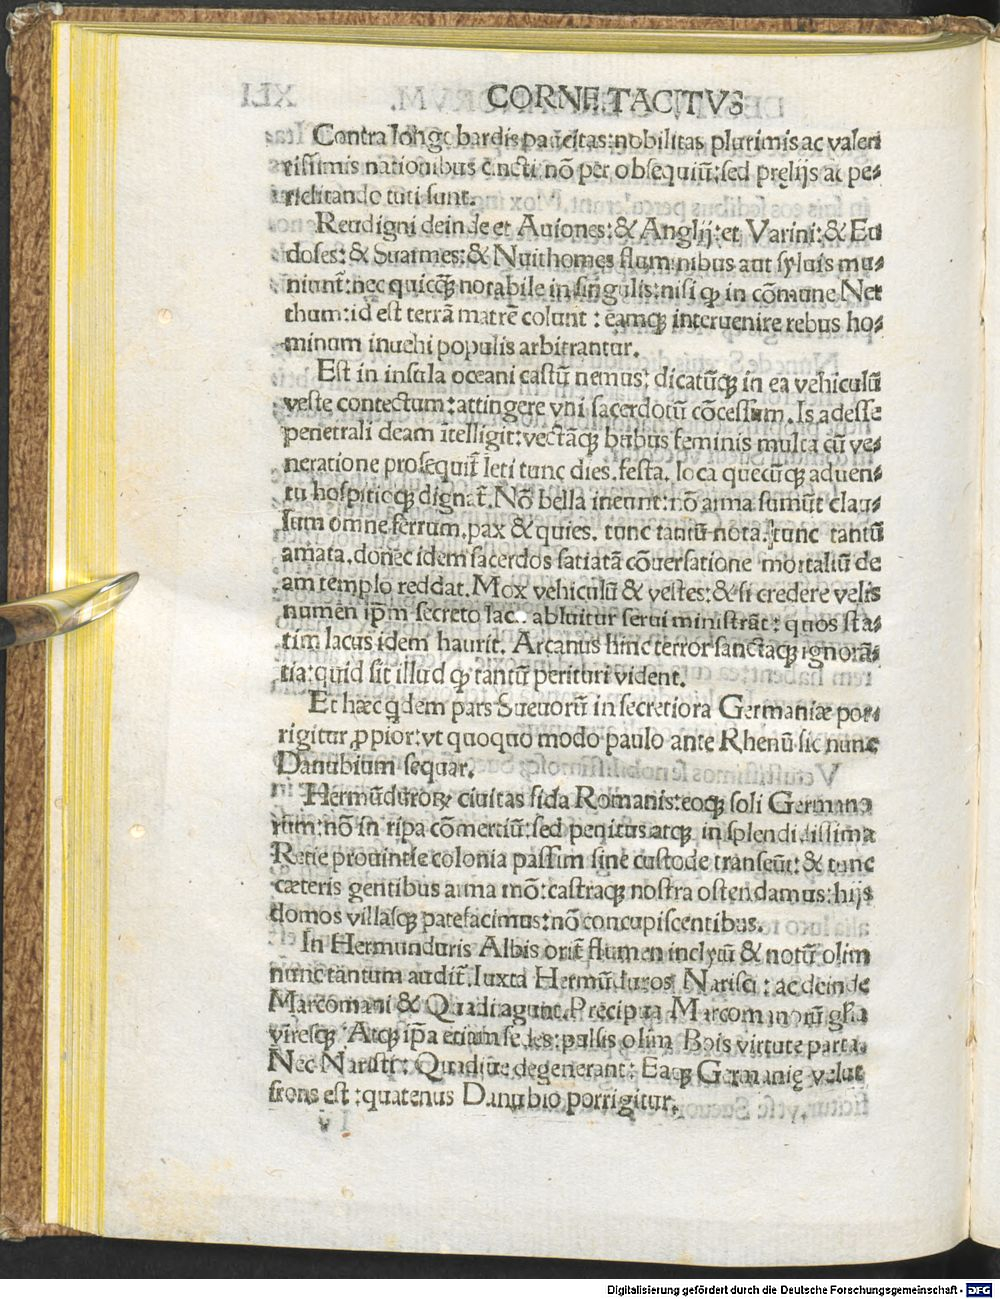 CORNE. TACITVS
Contra longobardis paucitas: nobilitas plurimis ac valen
tissimis nationibus cincti nō per obsequiū: sed prelijs ac pe⸗
riclitando tuti sunt.
Reudigni deinde et Auiones: & Anglij: et Varini: & Eu
doses: & Suarmes: & Nuithomes fluminibus aut syluis mu⸗
niunt̄: nec quicq̄ꝫ notabile in singulis: nisi ꝙ in cōmune Ner
thum: id est terrā matrē colunt: eamqꝫ interuenire rebus ho⸗
minum inuehi populis arbitrantur.
Est in insula oceani castū nemus: dicatūqꝫ in ea vehiculū
veste contectum: attingere vni sacerdotū cōcessum. Is adesse
penetrali deam ītelligit: vectāqꝫ bubus feminis multa cū ve⸗
neratione prosequit̄ leti tunc dies. festa. loca quecūqꝫ aduen⸗
tu hospitioqꝫ dignat̄. Nō bella ineunt: nō arma sumūt clau⸗
sum omne ferrum. pax & quies. tunc tantū nota. tunc tantū
amata. donec idem sacerdos satiatā cōuersatione mortaliū de
am templo reddat. Mox vehiculū & vestes: & si credere velis
numen ip̄m secreto lac.. abluitur serui ministrāt: quos sta⸗
tim lacus idem haurit. Arcanus hinc terror sanctaqꝫ ignorā⸗
tia: quid sit illud ꝙ tantū perituri vident.
Et hæc q̇dem pars Sueuorū in secretiora Germaniæ por⸗
rigitur ꝓpior: vt quoquo modo paulo ante Rhenū sic nunc
Danubium sequar.
Hermūdurorꝝ ciuitas fida Romanis: eoqꝫ soli Germano
rum: nō in ripa cōmertiū: sed penitus atqꝫ in splendidissima
Retie prouintie colonia passim sine custode transeūt: & tunc
cæteris gentibus arma mō: castraqꝫ nostra ostendamus: hijs
domos villasqꝫ patefacimus: nō concupiscentibus.
In Hermunduris Albis orit̄ flumen inclytū & notū olim
nunc tantum audit̄. Iuxta Hermūduros Narisci: ac deinde
Marcomani & Quadi agunt. Precipua Marcomanorū gl̄ia
viresqꝫ Atqꝫ ip̄a etiam sedes: pulsis olim Bois virtute parta.
Nec Naristi: Quadiue degenerant: Eaqꝫ Germanię velut
frons est: quatenus Danubio porrigitur.